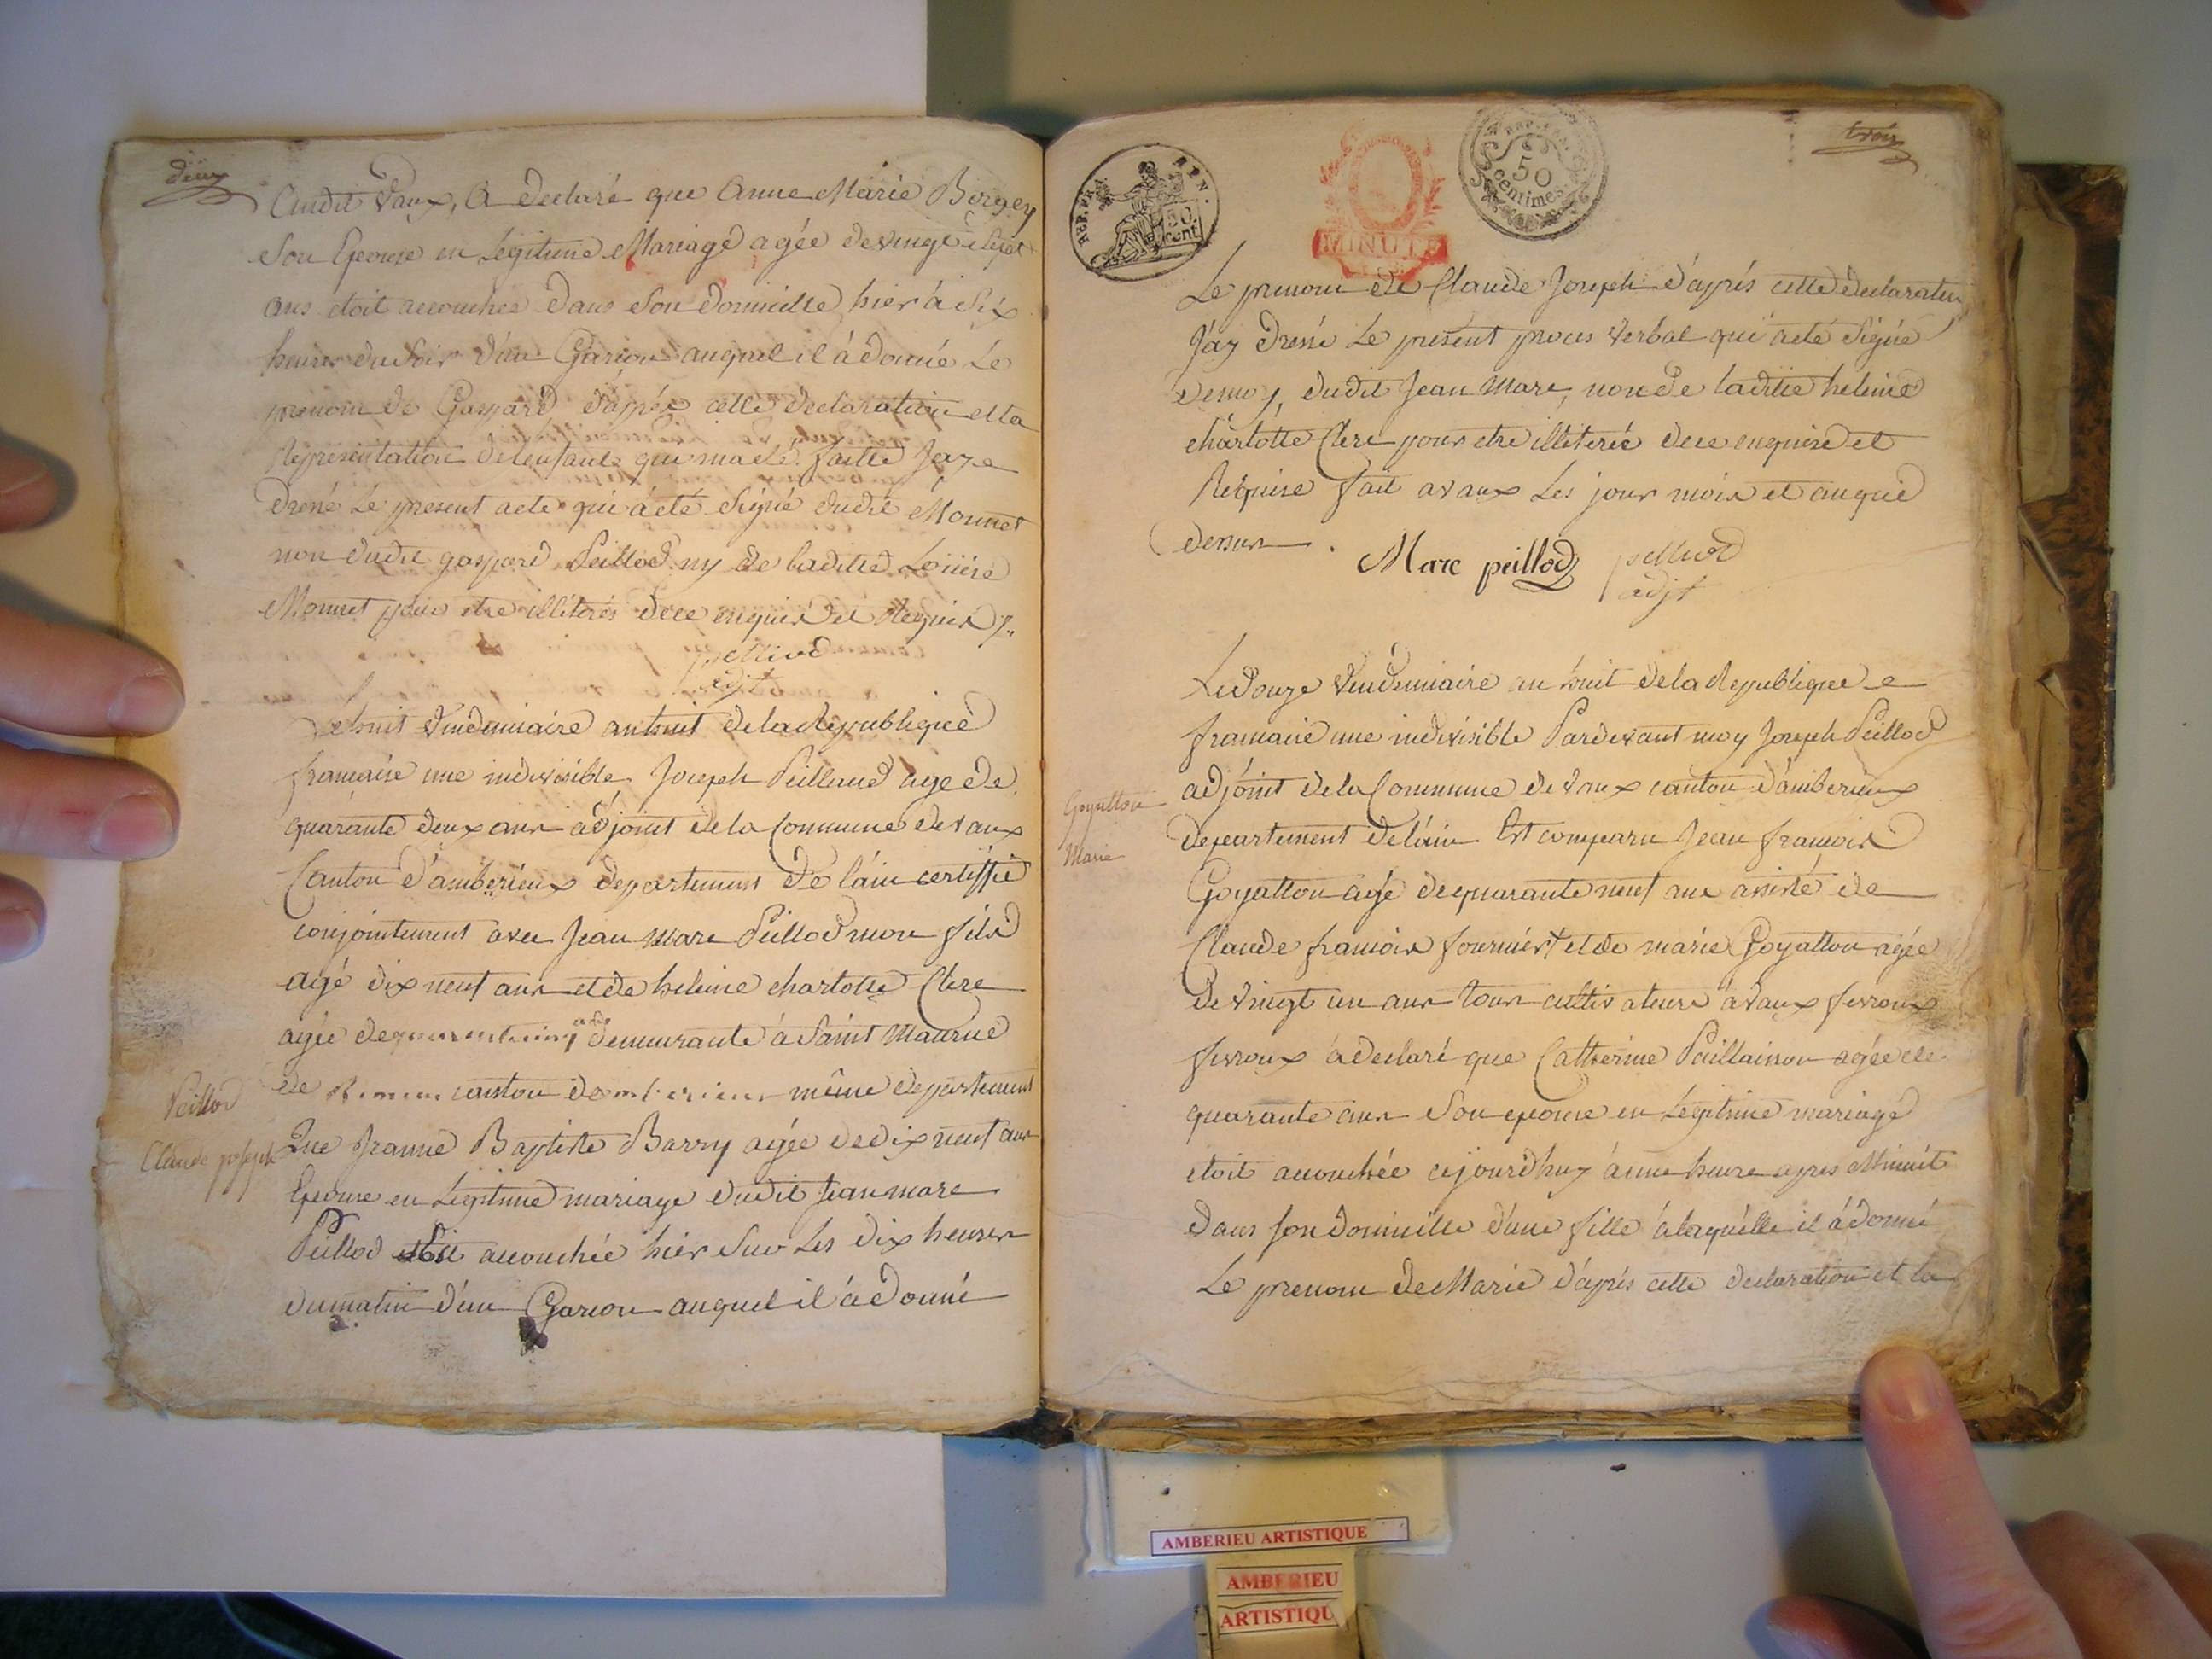 deux
Audit Vaux, A declaré que Anne Marie Borgey
Son Epouse en Légitime Mariage agée de vingt Sept
ans etoit accouchée dans Son domicille hier à Six
heures du Soir d'un Garçon auquel il à donné Le
prenom de Gaspard d'après cette declaration et la
Représentation de lenfant qui ma eté faitte Jay
dressé Le present acte qui à eté Signé dudit Monnet
non dudit gaspard Peillod ny de laditte Loüise
Monnet pour etre illiterés de ce enquis et Requis
peillod
adjt
Le huit Vindemiaire an huit de la Republique
française une indivisible Joseph Peilloud age de
quarante deux ans adjoint de la Commune de vaux
Canton d'amberieux departement de l'ain certiffie
conjointement avec Jean Marc Peillod mon fils
agé dix neuf ans et de heleine charlotte Clerc
agée de demeurante à Saint Maurice
de canton d'amberieux même departement
Peillod
Claude joseph
Que Jeanne Baptiste Barry agée de dix neuf ans
Epouse en Legitime mariage dudit Jean marc
Peillod est accouchée hier Sur Les dix heures
du matin d'un Garçon auquel il à donné
trois
REP. FRA.
50 cent
MINUTE
50 centimes
Le prenom de Claude Joseph d'après cette declaration
Jay dressé Le present proces verbal qui à eté Signé
de moy, dudit Jean Marc, non de laditte heleine
charlotte Clerc pour etre illiterée de ce enquise et
Requise fait a vaux Les jour mois et an que
dessus.
Marc peillod peillod
adjt
Le douze Vindemiaire an huit de la Republique
française une indivisible Pardevant moy Joseph Peillod
adjoint de la Commune de vaux canton d'amberieux
Goyatton
Marie
departement de l'ain Est comparu Jean françois
Goyatton agé de quarante neuf ans assisté de
Claude françois fournier et de marie Goyatton agée
de vingt un ans tous cultivateurs à vaux fevroux
fevroux à declaré que Catherine Paillaisson agée de
quarante ans Son epouse en Légitime mariage
etoit accouchée cejourdhuy à une heure apres Minuit
dans son domicille d'une fille à laquelle il à donné
Le prenom de Marie d'après cette declaration et la
AMBERIEU ARTISTIQUE
AMBERIEU
ARTISTIQU